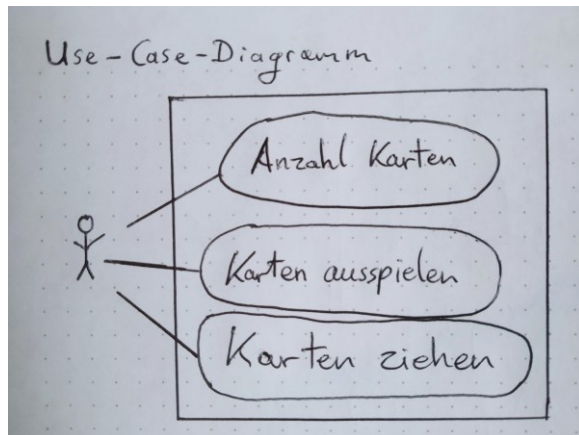 Use-Case-Diagramm
Anzahl Karten
Karten ausspielen
Karten ziehen